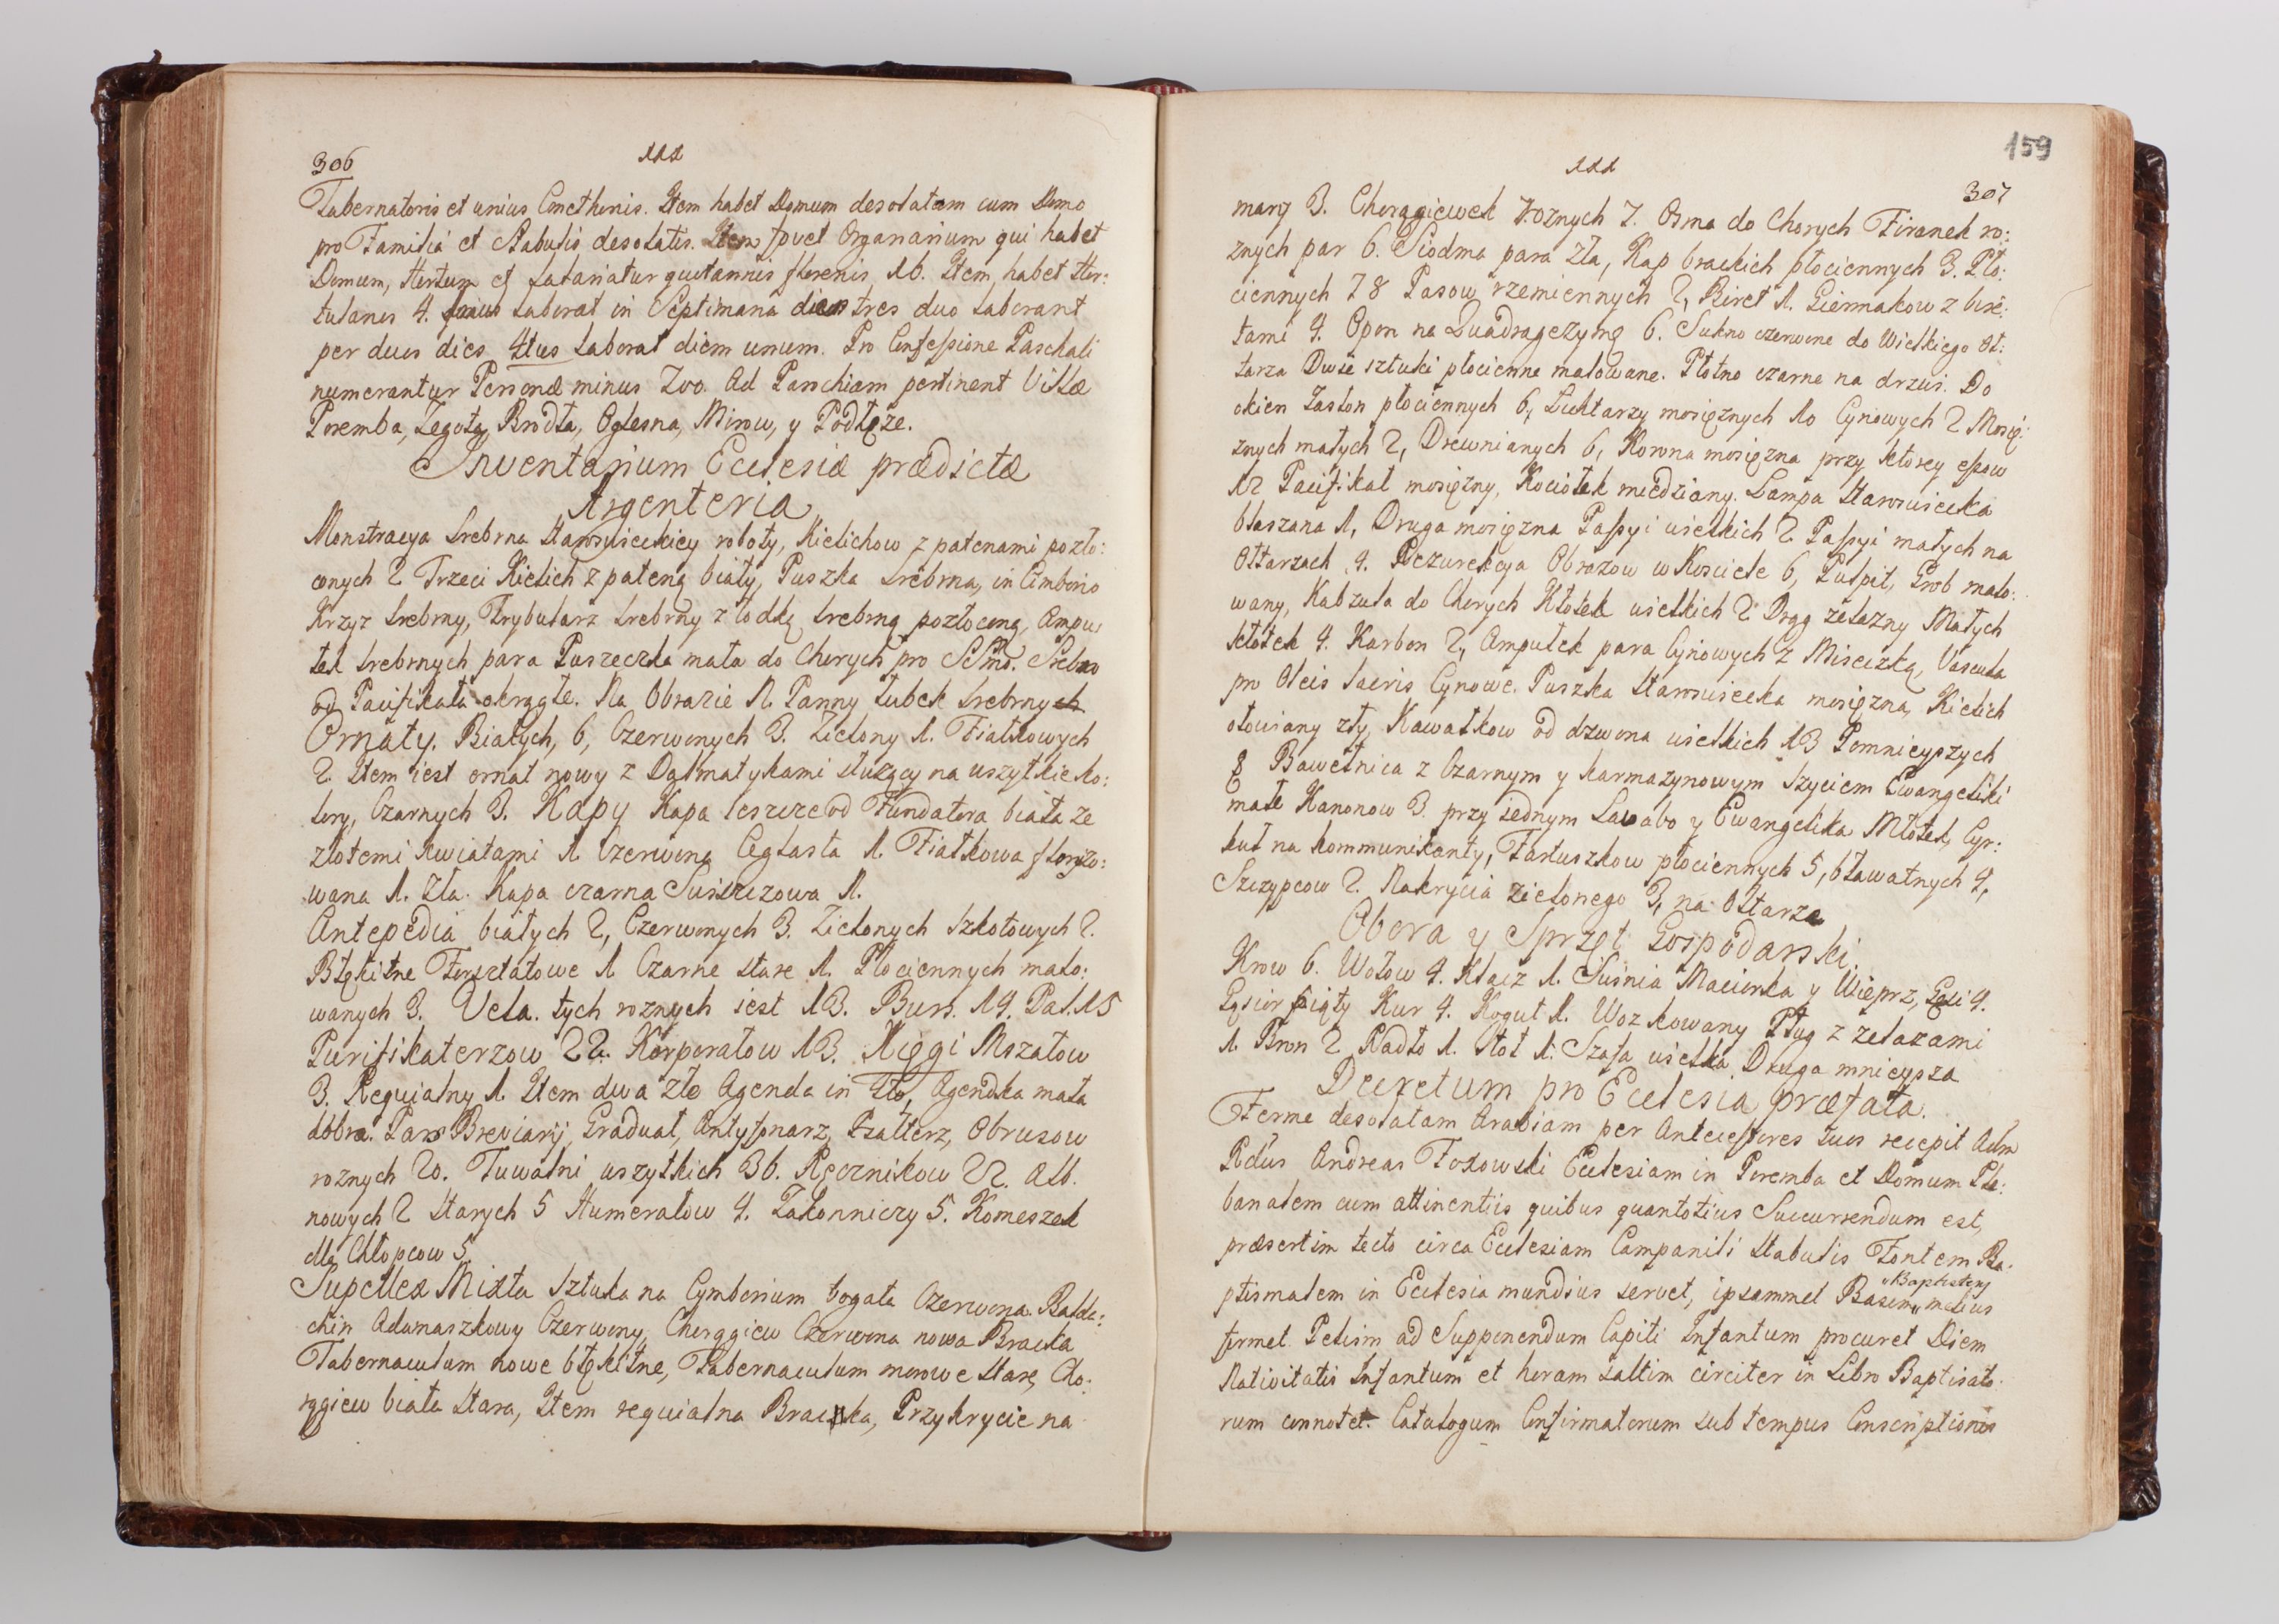 306
Tabernatoris et unius Cmethonis. Item habet Domum desolatam cum Domo
pro Familiá et Stabulis desolatis. Item fovet Organarium qui habet
Domum, Hortum et salariatur quotannis florenis 16. Item habet Hor:
tulanos 4. laborat in Septimana dies tres duo laborant
per duos dies 4tus laborat diem unum. Pro Confessione Paschali
numerantur Personæ minus 700. Ad Parochiam pertinent Villæ
Poremba, Zegota, Brodła, Oglesna, Mirow, y Podłęże.
Inventarium Ecclesiæ prædictæ
Argenteria
Monstracya srebrna staroswieckiey roboty, Kielichow z patenami pozło:
conych 2 Trzeci Kielich z pateną biały, Puszka srebrna, in Cimborio
Krzyz srebrny, Trybularz srebrny z łodką srebrną pozłoconą, Ampu
tek srebrnych para Puszeczka mała do Chorych pro SSmo. Srebro
od Pacifikału okrągłe. Na Obrazie N. Panny tubek srebrnych
Ornaty. Białych, 6, Czerwonych 3. Zielony 1. Fiałkowych
2. Item iest ornat nowy z Dalmatykami służący na wszytkie ko:
lory, Czarnych 3. Kapy Kapa ieszcze od Fundatora biała ze
złotemi kwiatami 1. Czerwona Ceglasta 1. Fiałkowa floryzo:
wana 1. Zła. Kapa czarna Suszczowa 1.
Antepedia białych 2, Czerwonych 3. Zielonych Szkołowych 2.
Błękitne Forsztatowe 1 Czarne stare 1. Płóciennych malo:
wanych 3. Vela. tych roznych iest 13. Burs. 14. Pal. 15
Purifikaterzow 22. Korporałow 13. Xięgi Mszałow
3. Requialny 1. Item dwa złe Agenda in 4to, Agendka mała
dobra. Pars Breviarij, Graduał, Antyfonarz, Psałterz, Obrusow
roznych 20. Tuwalni wszytkich 36. Ręcznikow 22. Alb.
nowych 2 Starych 5 Humerałow 4. Zakonniczy 5. Komeszek
dla Chłopcow 5.
Supellex Mixta Sztuka na Cymborium bogata Czerwona. Balda:
chin Adamaszkowy Czerwony, Chorągiew Czerwona nowa Bracka
Tabernaculum nowe błękitne, Tabernaculum morowe stare, Cho:
rągiew biała stara, Item requialna Bracka, Przykrycie na
159
307
mary 3. Chorągiewek roznych 7. Osma do Chorych Firanek ro:
znych par 6. Siodma para zła, Kap brackich płóciennych 3. Płó:
ciennych 78 Pasow rzemiennych 2, Biret 1. Giermakow z bire:
tami 4. Opon na Quadragezymę 6. Sukno czerwone do Wielkiego Oł:
tarza Dwie sztuki płócienne malowane. Płótno czarne na drzwi. Do
okien Zasłon płóciennych 6, Lichtarzy mosięznych 10 Cynowych 2 Mosię:
znych małych 2, Drewnianych 6, Korona mosięzna przy ktorey essow
12 Pacifikał mosięzny, Kociołek miedziany. Lampa staroswiecka
blaszana 1, Druga mosięzna Passyi wielkich 2 Passyi małych na
Ołtarzach 4. Rezurekcya Obrazow w Kościele 6, Pulpit, Grob malo:
wany, Kabzula do Chorych Kłótek wielkich 2 Drąg zelazny Małych
kłótek 4. Karbon 2, Ampułek para Cynowych z Miseczką, Vascula
pro Oleis sacris Cynowe. Puszka staroswiecka mosięzna, Kielich
ołowiany zły, Kawałkow od dzwona wielkich 13 Pomnieyszych
8 Bawełnica z Czarnym y karmazynowym szyciem Ewangeliki
małe Kanonow 3. przy iednym Lavabo y Ewangelika Młotek, Cyr:
kuł na kommunikanty, Fartuszkow płóciennych 5, bławatnych 4,
Szczypcow 2. Nakrycia zielonego 3, na Ołtarze
Obora y Sprzęt Gospodarski.
Krow 6. Wołow 4. Klacz 1. Swinia Maciorka y Wieprz, Gęsi 4.
Gąsior piąty Kur 4. Kogut 1. Woz kowany Pług z zelazami
1. Bron 2. Radło 1. Stoł 1. Szafa wielka Druga mnieysza
Decretum pro Ecclesia præfata.
Ferme desolatam Arabiam per Antecessores suos recepit Adm
Rdus Andreas Foxowski Ecclesiam in Poremba et Domum Ple:
banalem cum attinentiis quibus quantotius Succurrendum est,
præsertim tecto circa Ecclesiam Campanili Stabulis Fontem Ba:
ptismalem in Ecclesia mundius servet, ipsammet Basim "Baptisterij melius
firmet. Pelvim ad Supponendum Capiti Infantum procuret Diem
Nativitatis Infantum et horam saltim circiter in Libro Baptisato:
rum connotet. Catalogum Confirmatorum sub tempus Conscriptionis